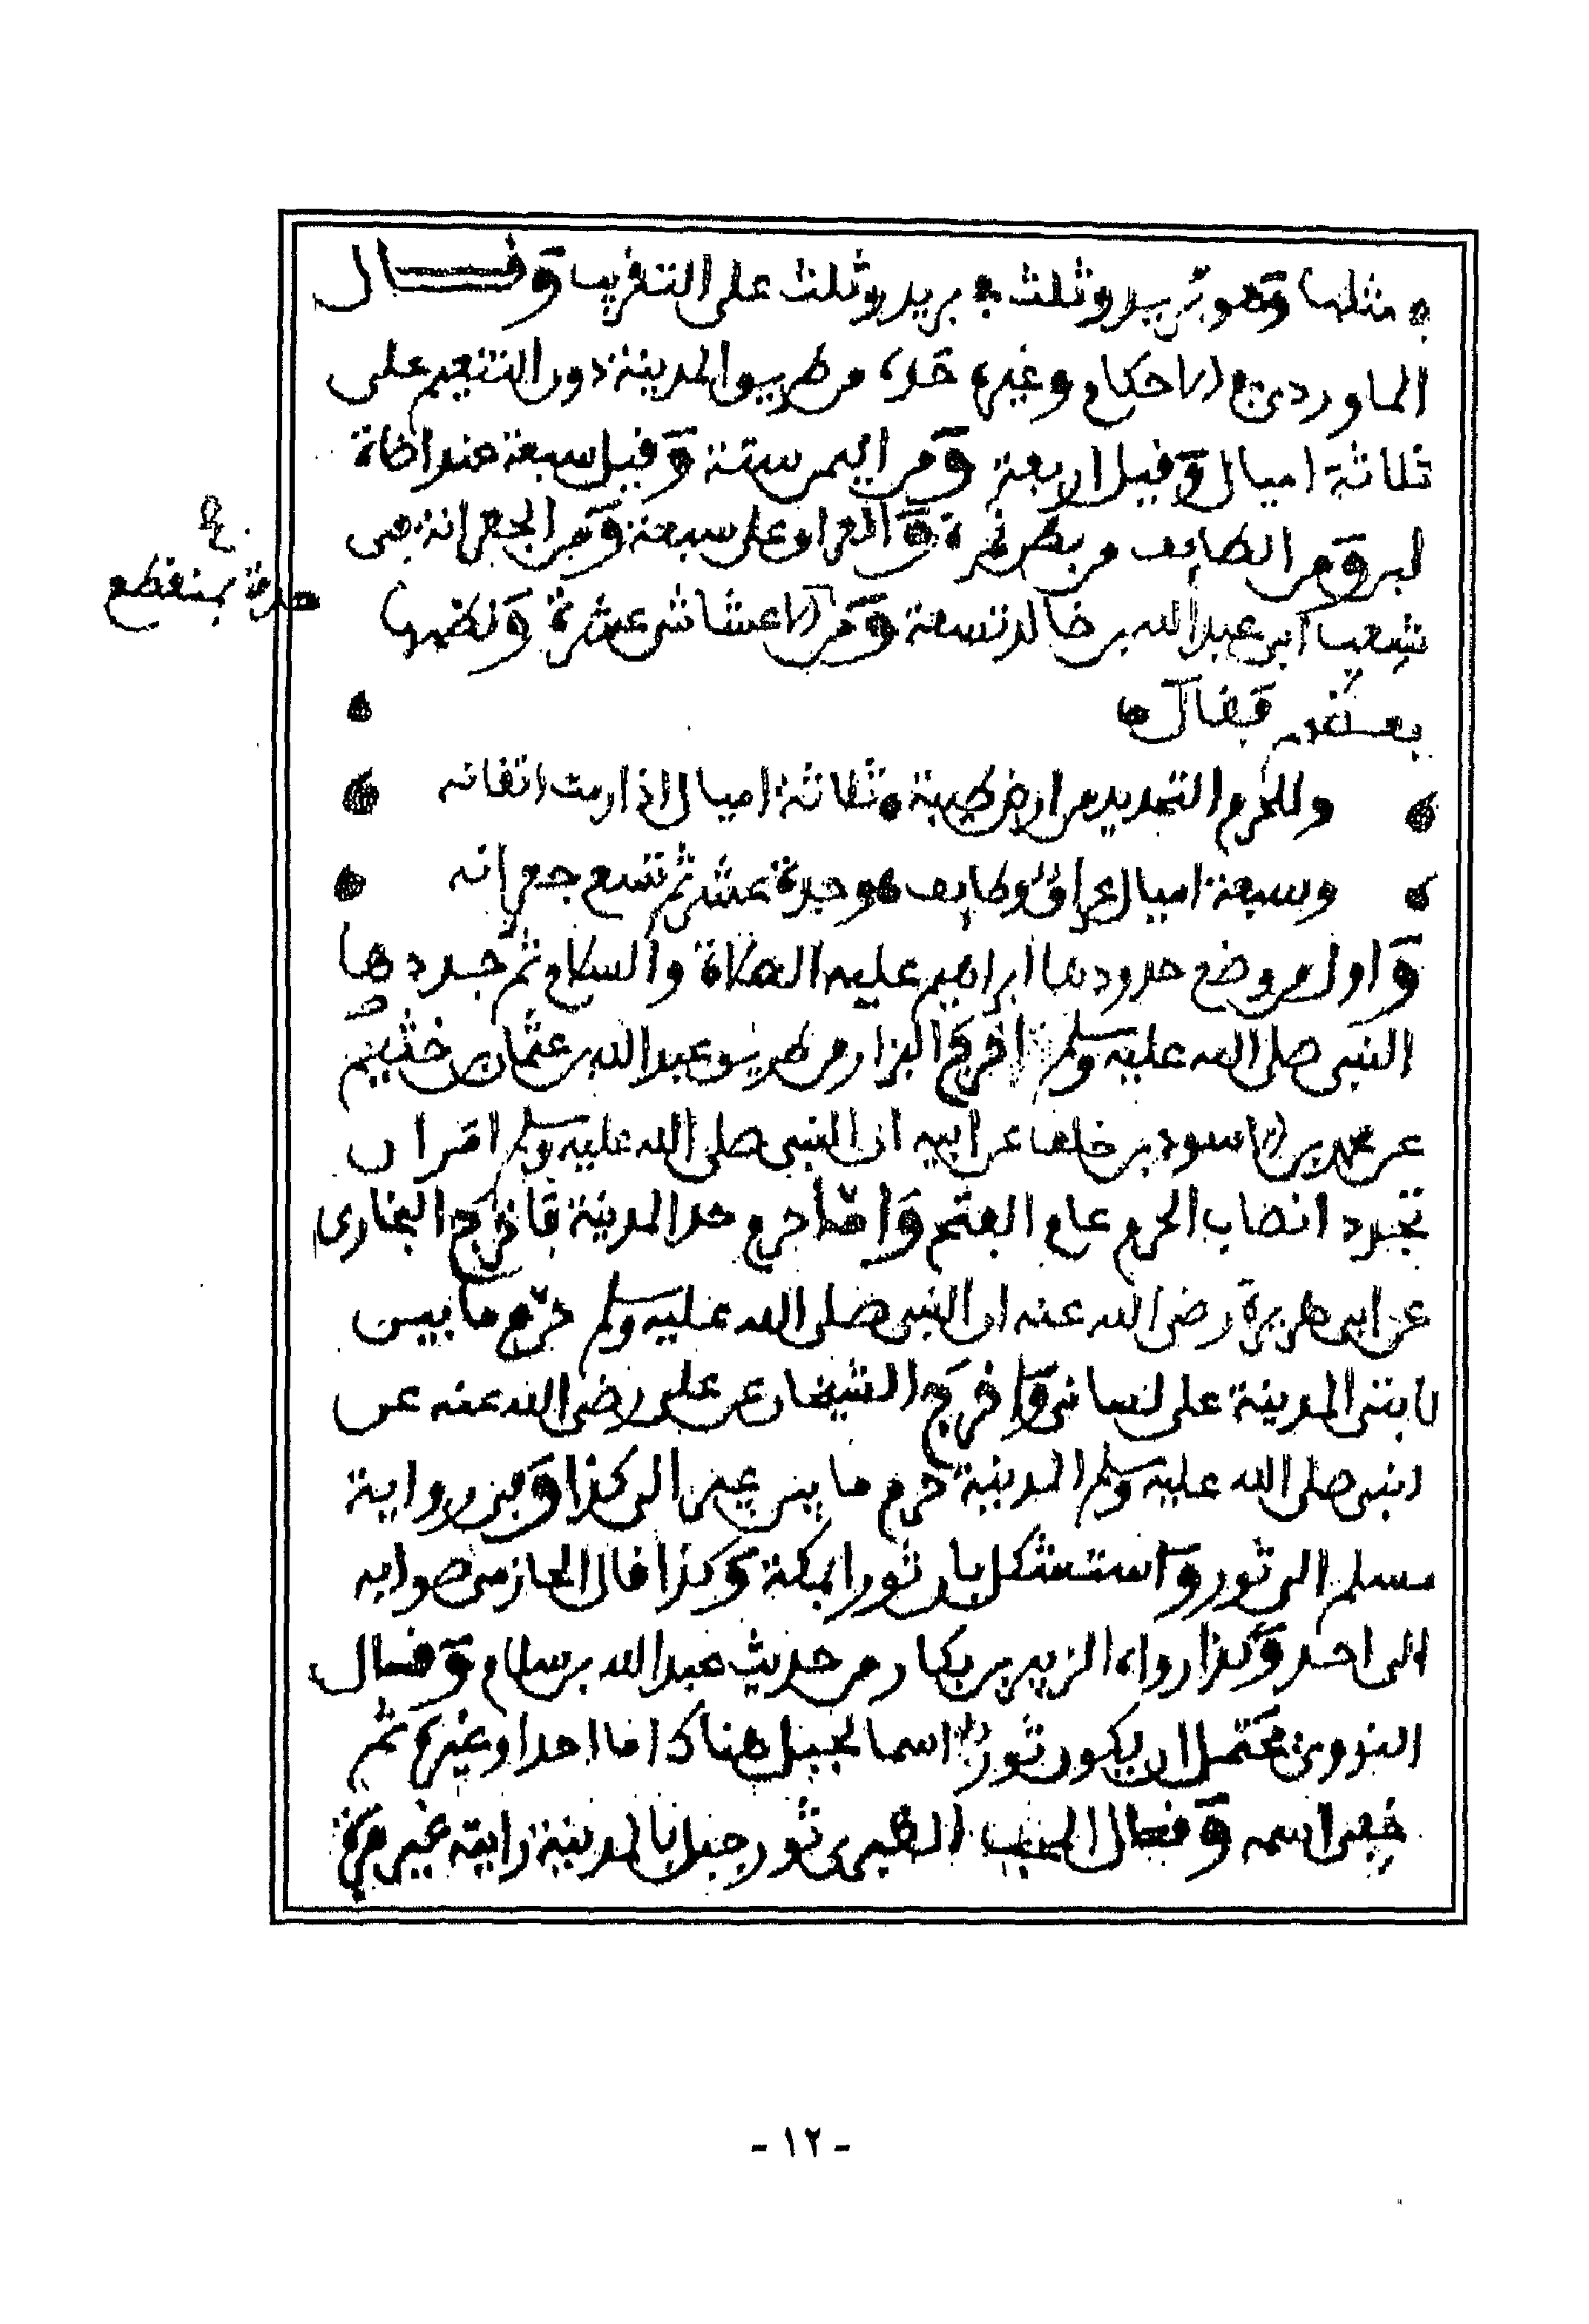 في مثلها وهو بريد وثلث في بريد وثلث على التقريب وقال
الماوردي في الاحكام وغيره حده من طريق المدينة دون التنعيم على
ثلاثة اميال وقيل اربعة ومن اليمن ستة وقيل سبعة عند اضاة
لبن ومن الطايف من بطن نمرة والعراق على سبعة ومن الجعرانة في
شعب ابي عبد الله بن خالد تسعة ومن الاعشاش عشرة ونظمها
بعضهم فقال
وللحرم التحديد من ارض طيبة ثلاثة اميال اذا رمت اتقانه
وسبعة اميال عراق وطايف وجدة عشر ثم تسع جعرانه
واول من وضع حدودها ابراهيم عليه الصلاة والسلام ثم جددها
النبي صلى الله عليه وسلم اخرج البزار من طريق عبد الله بن عثمان بن خثيم
عن محمد بن الاسود بن خلف عن ابيه ان النبي صلى الله عليه وسلم امر ان
تجدد انصاب الحرم عام الفتح واما حرم حد المدينة فاخرج البخاري
عن ابي هريرة رضي الله عنه ان النبي صلى الله عليه وسلم حرم ما بين
لابتي المدينة على لساني واخرج الشيخان عن علي رضي الله عنه عن
النبي صلى الله عليه وسلم المدينة حرم ما بين عير الى كذا وفي رواية
مسلم الى ثور واستشكل بان ثورا بمكة وكذا قال الحازمي صوابه
الى احد وكذا رواه الزبير بن بكار من حديث عبد الله بن سلام وقال
النووي يحتمل ان يكون ثورا اسما لجبل هناك اما احدا وغيره ثم
خفي اسمه وقال المحب الطبري ثور جبل بالمدينة رايته غير مرة
- ١٢ -